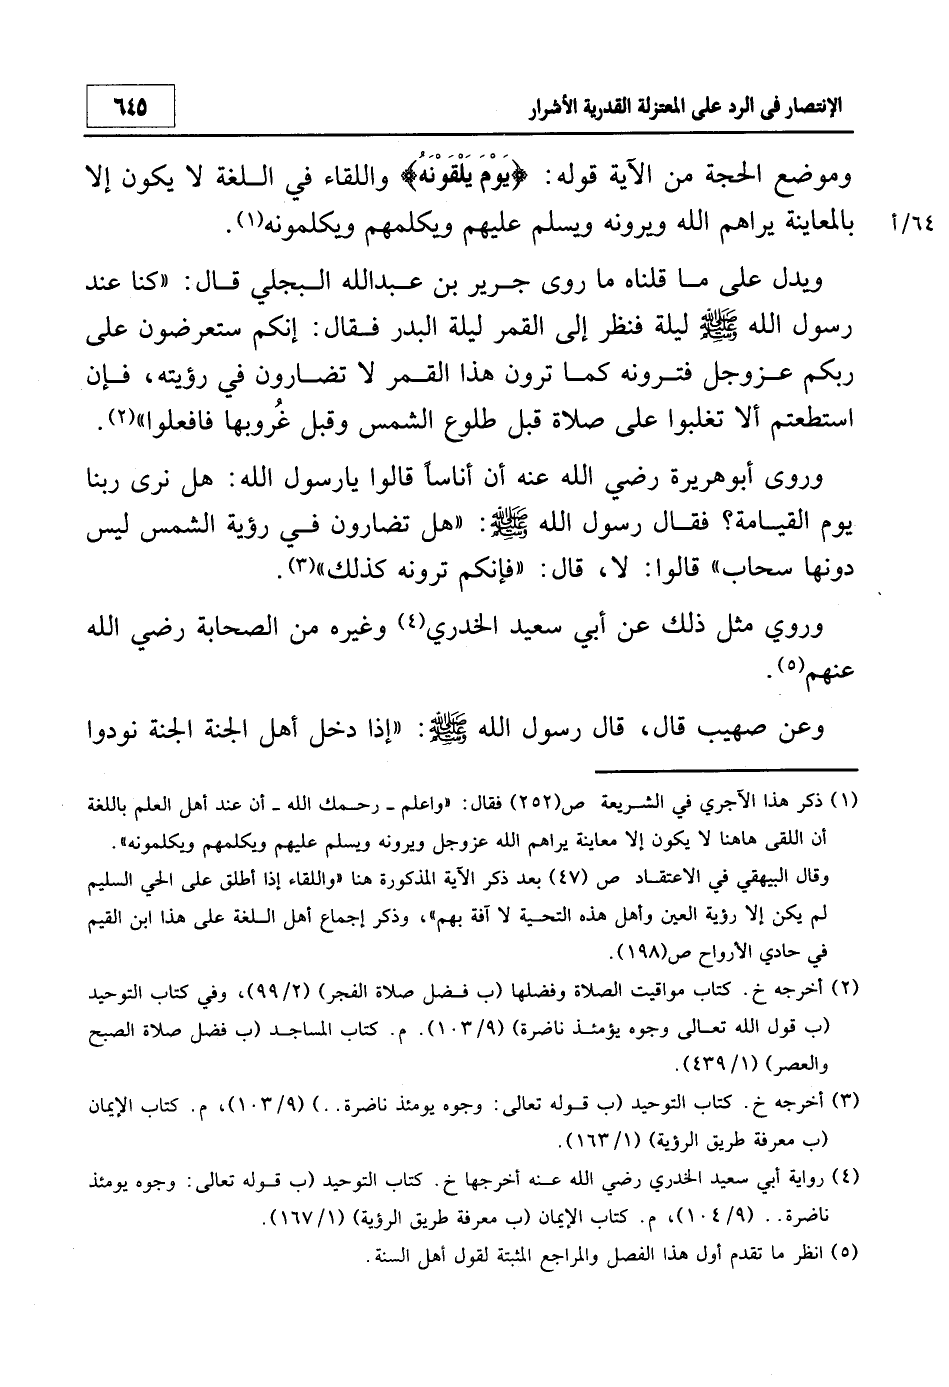 الإنتصار في الرد على المعتزلة القدرية الأشرار
٦٤٥
وموضع الحجة من الآية قوله: ﴿يَوْمَ يَلْقَوْنَهُ﴾ واللقاء في اللغة لا يكون إلا
بالمعاينة يراهم الله ويرونه ويسلم عليهم ويكلمهم ويكلمونه(١).
٦٤/أ
ويدل على ما قلناه ما روى جرير بن عبدالله البجلي قال: «كنا عند
رسول الله ﷺ ليلة فنظر إلى القمر ليلة البدر فقال: إنكم ستعرضون على
ربكم عزوجل فترونه كما ترون هذا القمر لا تضارون في رؤيته، فإن
استطعتم ألا تغلبوا على صلاة قبل طلوع الشمس وقبل غُروبها فافعلوا»(٢).
وروى أبوهريرة رضي الله عنه أن أناساً قالوا يارسول الله: هل نرى ربنا
يوم القيامة؟ فقال رسول الله ﷺ: «هل تضارون في رؤية الشمس ليس
دونها سحاب» قالوا: لا، قال: «فإنكم ترونه كذلك»(٣).
وروي مثل ذلك عن أبي سعيد الخدري(٤) وغيره من الصحابة رضي الله
عنهم(٥).
وعن صهيب قال، قال رسول الله ﷺ: «إذا دخل أهل الجنة الجنة نودوا
(١) ذكر هذا الآجري في الشريعة ص(٢٥٢) فقال: «واعلم - رحمك الله - أن عند أهل العلم باللغة
أن اللقى هاهنا لا يكون إلا معاينة يراهم الله عزوجل ويرونه ويسلم عليهم ويكلمهم ويكلمونه».
وقال البيهقي في الاعتقاد ص (٤٧) بعد ذكر الآية المذكورة هنا «واللقاء إذا أطلق على الحي السليم
لم يكن إلا رؤية العين وأهل هذه التحية لا آفة بهم»، وذكر إجماع أهل اللغة على هذا ابن القيم
في حادي الأرواح ص(١٩٨).
(٢) أخرجه خ. كتاب مواقيت الصلاة وفضلها (ب فضل صلاة الفجر) (٩٩/٢)، وفي كتاب التوحيد
(ب قول الله تعالى وجوه يؤمئذ ناضرة) (١٠٣/٩). م. كتاب المساجد (ب فضل صلاة الصبح
والعصر) (٤٣٩/١).
(٣) أخرجه خ. كتاب التوحيد (ب قوله تعالى: وجوه يومئذ ناضرة..) (١٠٣/٩)، م. كتاب الإيمان
(ب معرفة طريق الرؤية) (١٦٣/١).
(٤) رواية أبي سعيد الخدري رضي الله عنه أخرجها خ. كتاب التوحيد (ب قوله تعالى: وجوه يومئذ
ناضرة.. (١٠٤/٩)، م. كتاب الإيمان (ب معرفة طريق الرؤية) (١٦٧/١).
(٥) انظر ما تقدم أول هذا الفصل والمراجع المثبتة لقول أهل السنة.